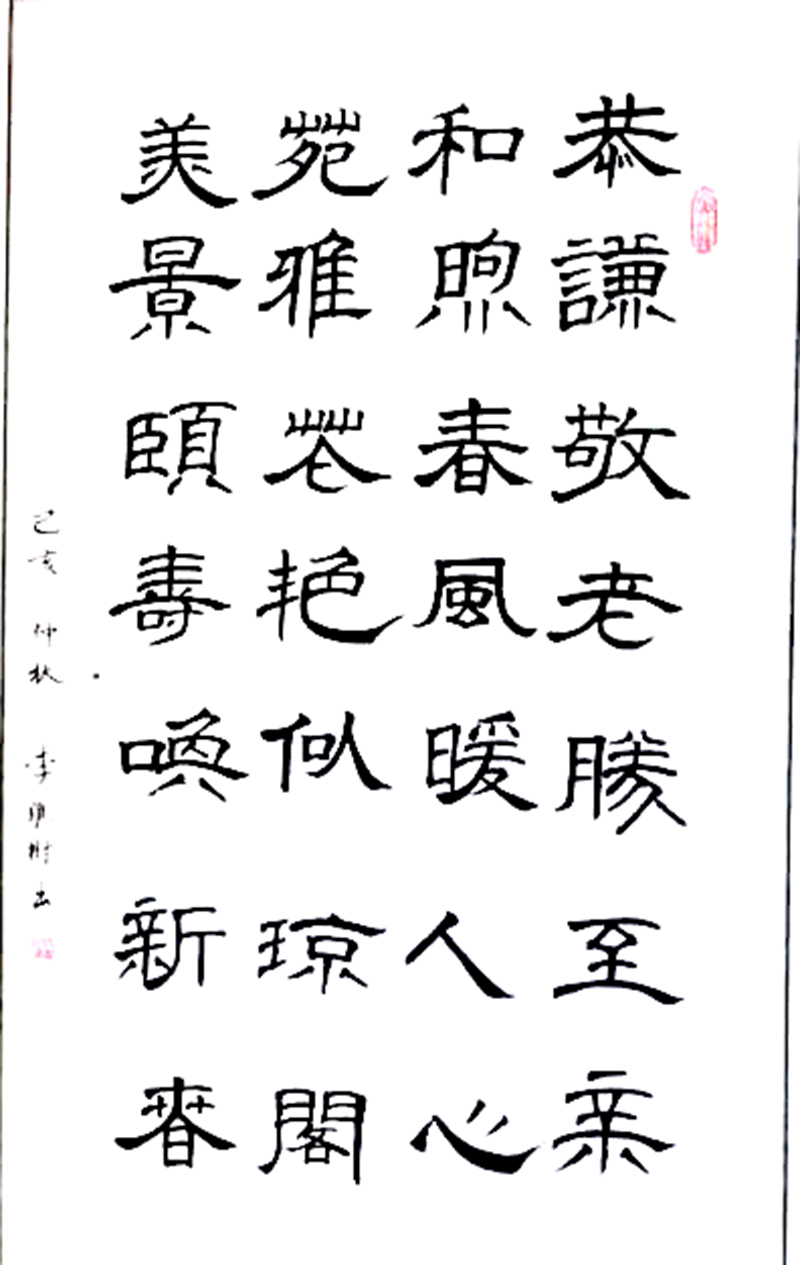 恭謙敬老勝至亲
和煦春風暖人心
苑雅花艳似琼閣
美景頤壽喚新春
己亥 仲秋 李 书